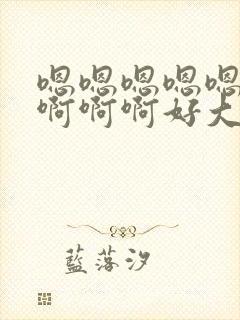 嗯嗯嗯嗯嗯
啊啊啊好大
藍落汐